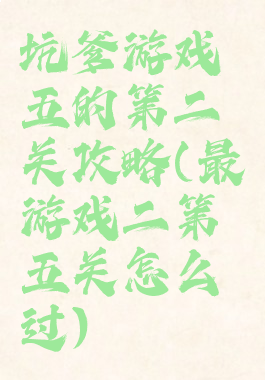 坑爹游戏
五的第二
关攻略(最
游戏二第
五关怎么
过)